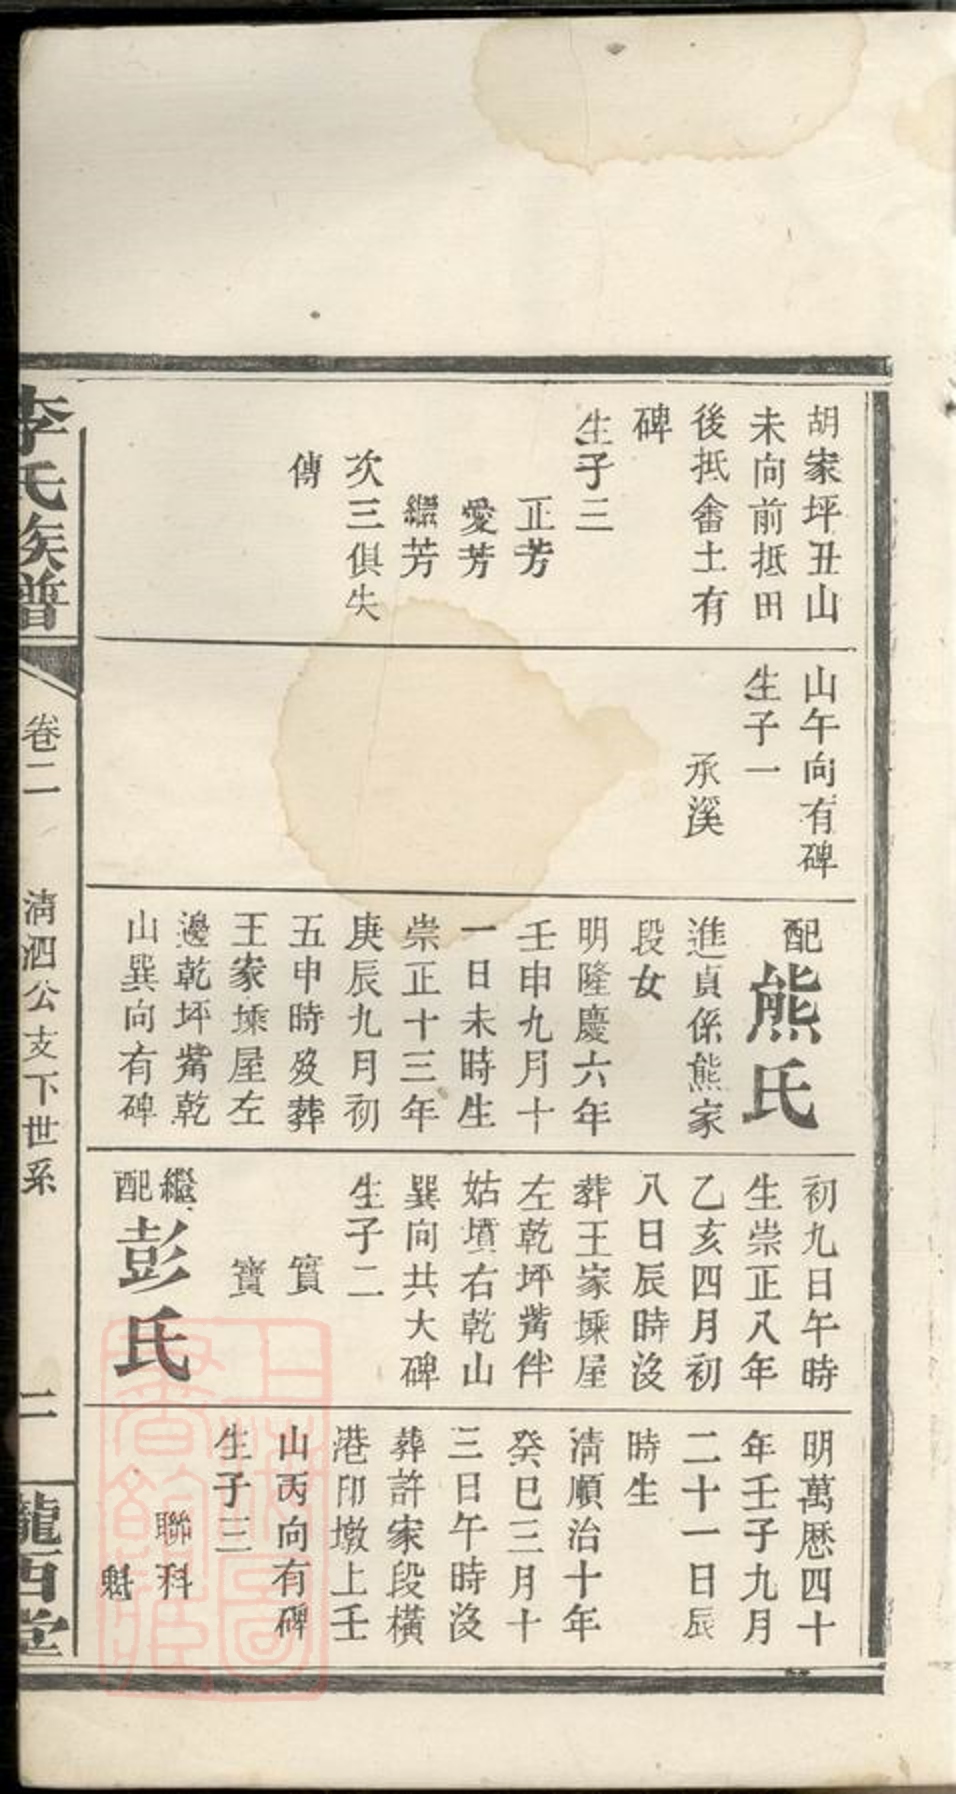 胡家坪丑山
未向前抵田
後抵畬土有
碑
生子三
正芳
愛芳
繼芳
次三俱失
傳
山午向有碑
生子一
承溪
配熊氏
進貞係熊家
段女
明隆慶六年
壬申九月十
一日未時生
崇正十三年
庚辰九月初
五申時歿葬
王家塝屋左
邊乾坪觜乾
山巽向有碑
初九日午時
生崇正八年
乙亥四月初
八日辰時沒
葬王家塝屋
左乾坪觜伴
姑墳右乾山
巽向共大碑
生子二
賓
寶
繼配彭氏
明萬歷四十
年壬子九月
二十一日辰
時生
淸順治十年
癸巳三月十
三日午時沒
葬許家段橫
港印墩上壬
山丙向有碑
生子三
聯科
魁
李氏族譜
卷二
淸泗公支下世系
二
隴西堂